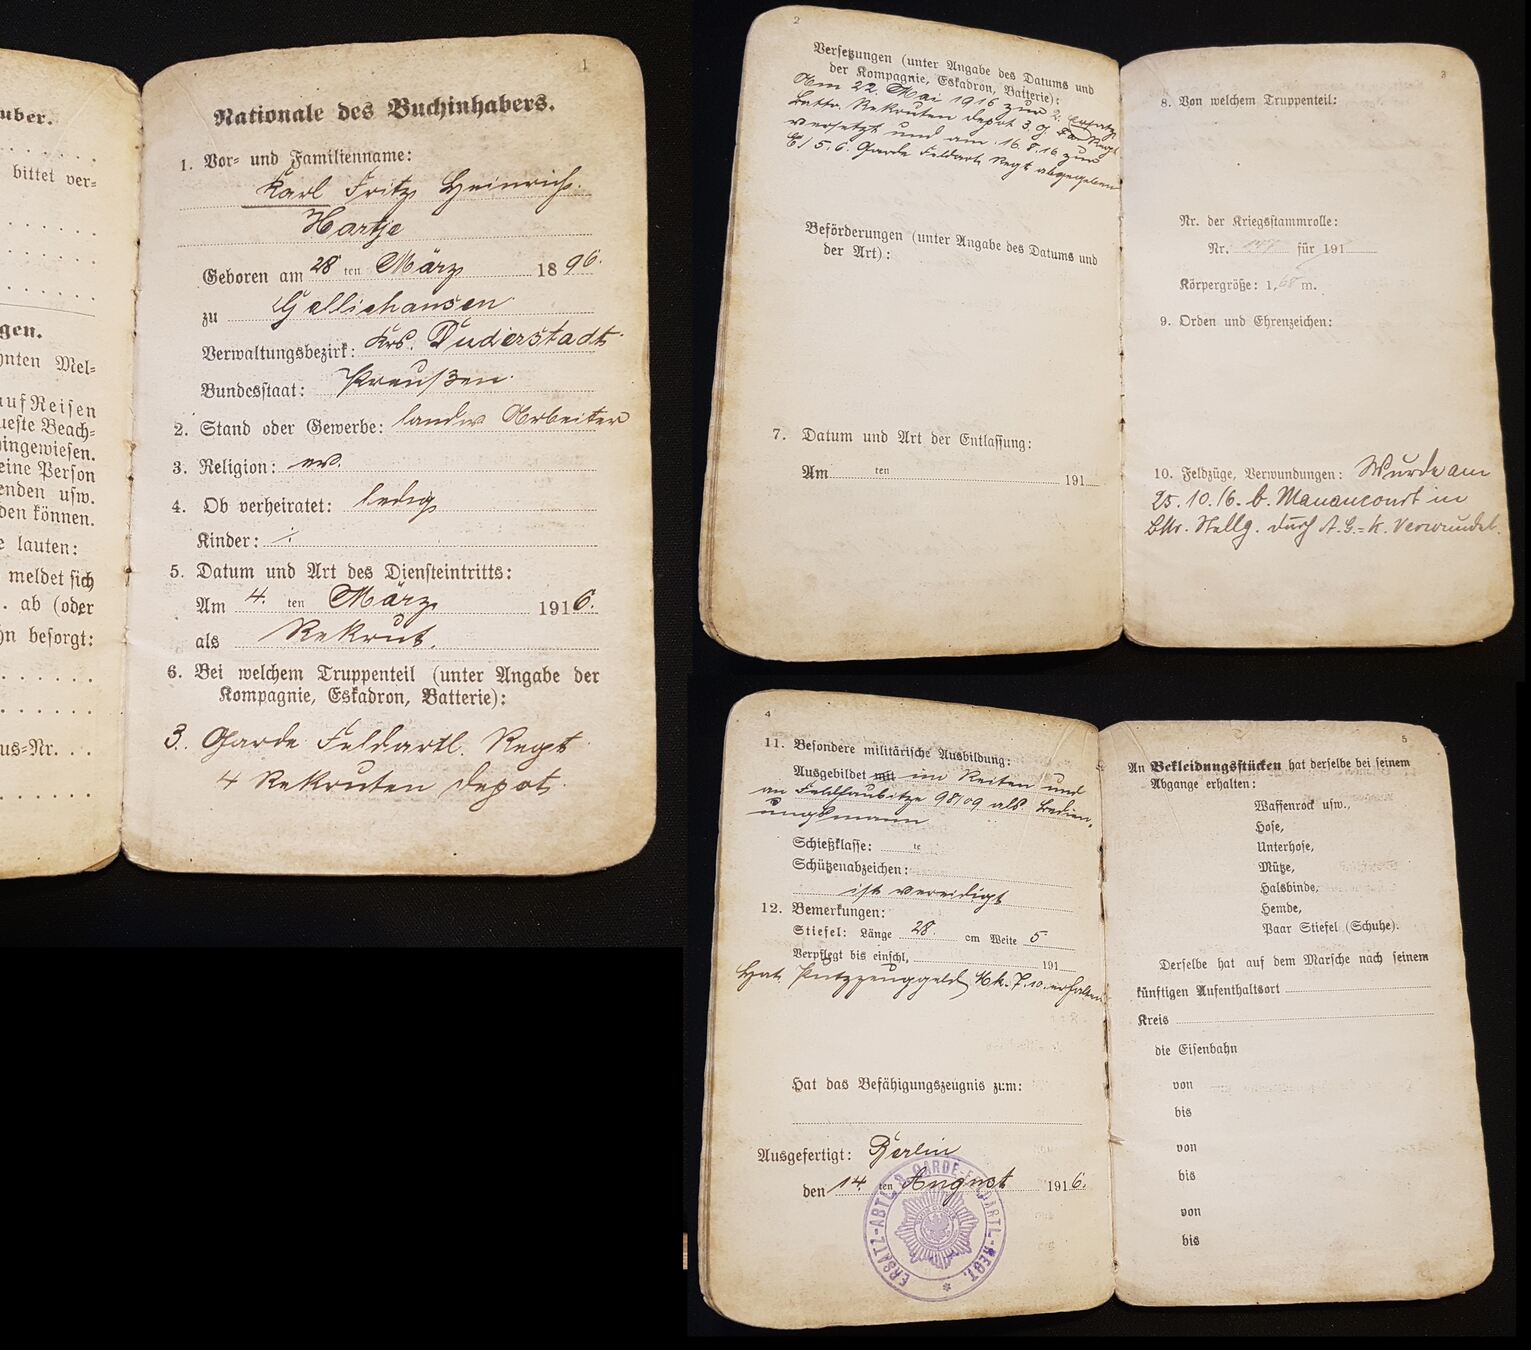 uber.
bittet ver=
gen.
hnten Mel=
auf Reisen
ueste Beach=
hingewiesen.
eine Person
enden usw.
den können.
e lauten:
meldet sich
. ab (oder
hn besorgt:
us=Nr. . .
1
Nationale des Buchinhabers.
1. Vor= und Familienname:
Karl Fritz Heinrich
Hartje
Geboren am 28 ten März 1896.
zu Gelliehausen
Verwaltungsbezirk: Krs. Duderstadt
Bundesstaat: Preußen
2. Stand oder Gewerbe: landw Arbeiter
3. Religion: ev.
4. Ob verheiratet: ledig
Kinder: /.
5. Datum und Art des Diensteintritts:
Am 4. ten März 1916.
als Rekrut.
6. Bei welchem Truppenteil (unter Angabe der
Kompagnie, Eskadron, Batterie):
3. Garde Feldartl. Regt
4 Rekruten depot
2
Versetzungen (unter Angabe des Datums und
der Kompagnie, Eskadron, Batterie):
Am 22. Mai 1916 zur 2. Ersatz
Battr. Rekruten depot 3. G Regt
versetzt und am 16.8.16 zur
5. G. Garde Feldart. Regt abgegeben
Beförderungen (unter Angabe des Datums und
der Art):
7. Datum und Art der Entlassung:
Am ten 191
3
8. Von welchem Truppenteil:
Nr. der Kriegsstammrolle:
Nr. für 191
Körpergröße: 1,68 m.
9. Orden und Ehrenzeichen:
10. Feldzüge, Verwundungen: Wurde am
25.10.16. b. Manancourt in
Bttr. Stellg. durch A.G.=K. verwundet.
4
11. Besondere militärische Ausbildung:
Ausgebildet mit im Reiten und
an Feldhaubitze 98/09 als Bedien,
ungsmann
Schießklasse: te
Schützenabzeichen:
ist vereidigt
12. Bemerkungen:
Stiefel: Länge 28 cm Weite 5
Verpflegt bis einschl, 191
Hat Putzzeuggeld Mk. 7.10. erhalten
Hat das Befähigungszeugnis zum:
Ausgefertigt: Berlin
den 14. ten August 1916.
ERSATZ-ABTL. 3. GARDE-FELDARTL.-REGT.
5
An Bekleidungsstücken hat derselbe bei seinem
Abgange erhalten:
Waffenrock usw.,
Hose,
Unterhose,
Mütze,
Halsbinde,
Hemde,
Paar Stiefel (Schuhe).
Derselbe hat auf dem Marsche nach seinem
künftigen Aufenthaltsort
Kreis
die Eisenbahn
von
bis
von
bis
von
bis